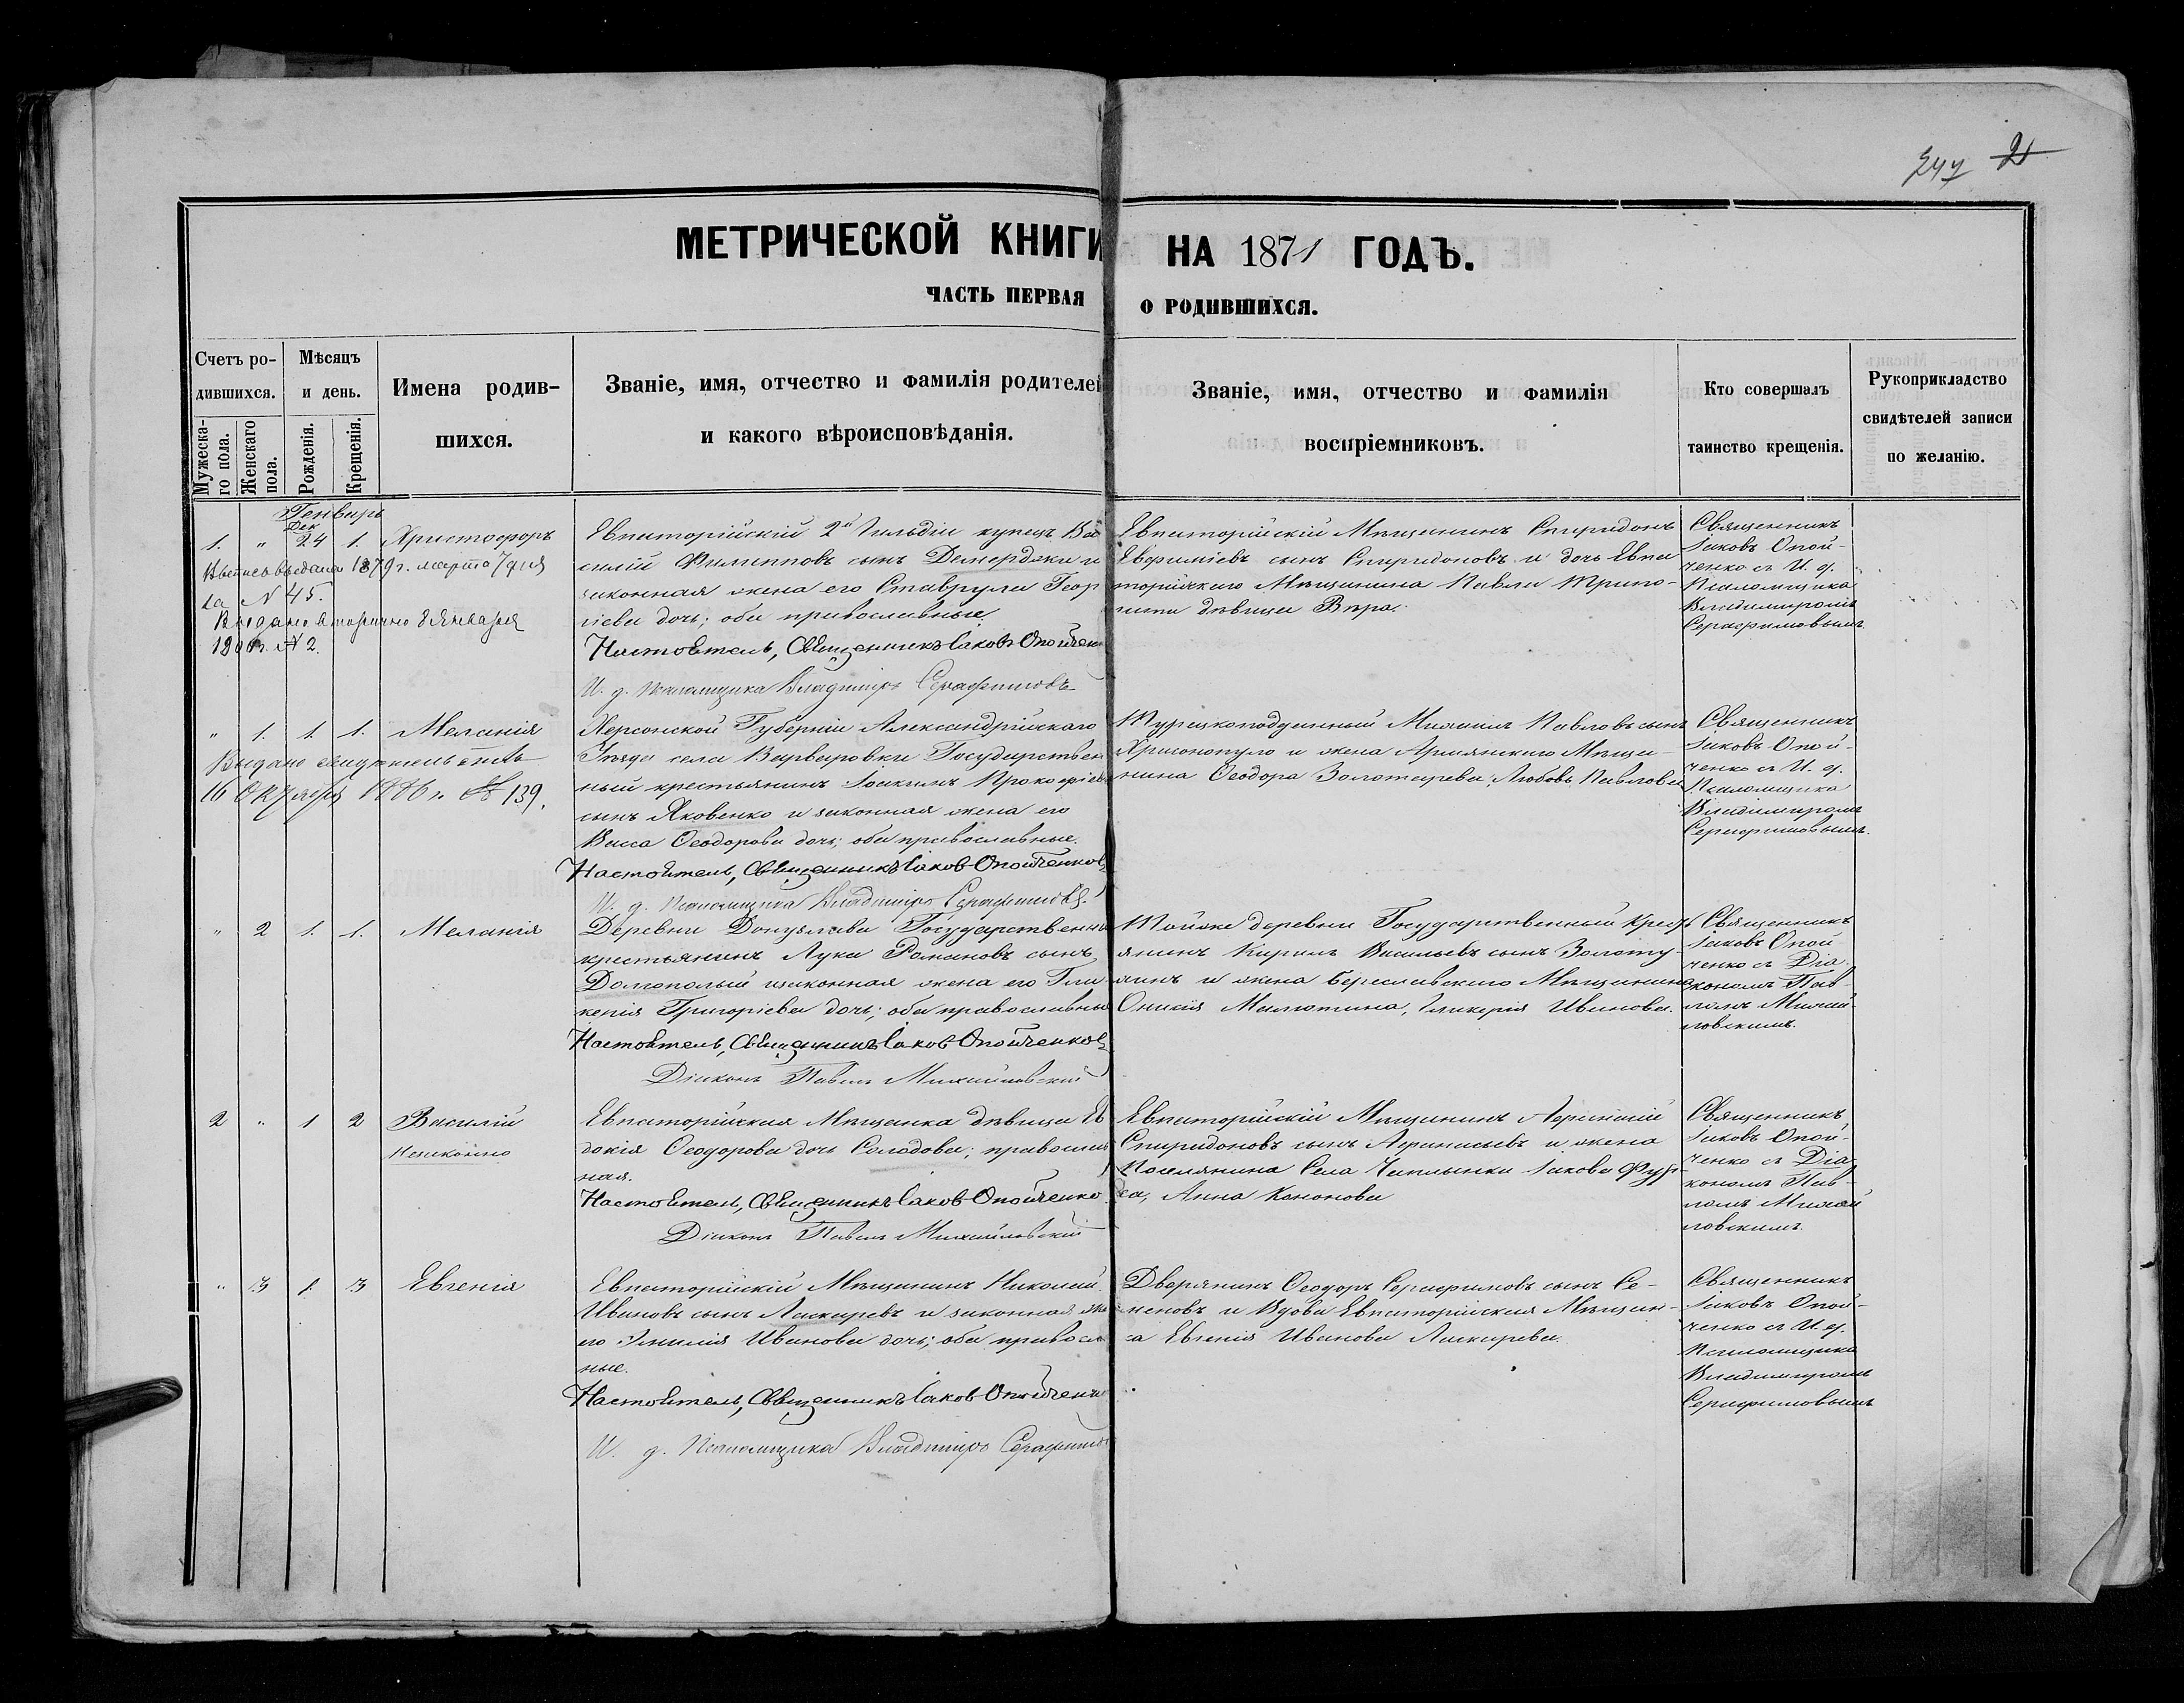 247 2
МЕТРИЧЕСКОЙ КНИГИ НА 1871 ГОДЪ.
ЧАСТЬ ПЕРВАЯ О РОДИВШИХСЯ.
Счетъ ро-
дившихся.
Мужеска-
го пола.
Женскаго
пола.
Мѣсяцъ
и день.
Рожденія.
Крещенія.
Имена родив-
шихся.
Званіе, имя, отчество и фамилія родителей
и какого вѣроисповѣданія.
Званіе, имя, отчество и фамилія
воспріемниковъ.
Кто совершалъ
таинство крещенія.
Рукоприкладство
свидѣтелей записи
по желанію.
Генварь
Дек
1. " 24 1. Христофоръ
Выпись выдана 1879 г. марта 7 дня
за N 45.
Выдано вторично 8 Января
1906 г. N 2.
Евпаторійскій 2й Гильдіи купецъ Ва
силій Филипповъ сынъ Демерджи и
законная жена его Ставрула Геор
гіева дочь; оба православные.
Настоятель, Священникъ Іаковъ Опойчен
И. д. Псаломщика Владиміръ Серафимовъ
Евпаторійскій Мѣщанинъ Спиридонъ
Евфиміевъ сынъ Спиридоновъ и дочь Евпа
торійскаго Мѣщанина Павла
дѣвица Вѣра.
Священникъ
Іаковъ Опой-
ченко съ И. д.
Псаломщика
Владиміромъ
Серафимовымъ.
" 1. 1. 1. Меланія
Выдано свидѣтельство
16 Октября 1886 г. № 139.
Херсонской Губерніи Александрійскаго
Уѣзда села Варваровки Государствен
ный крестьянинъ Іоакимъ Прокофіевъ
сынъ Яковенко и законная жена его
Васса Ѳеодорова дочь; оба православные.
Настоятель, Священникъ Іаковъ Опойченко
И. д. Псаломщика Владиміръ Серафимовъ.
Турецкоподданный Михаилъ Павловъ сынъ
Хрисопопуло и жена Армянскаго Мѣща-
нина Ѳеодора Золотарева, Любовь Павлова
Священникъ
Іаковъ Опой-
ченко съ И. д.
Псаломщика
Владиміромъ
Серафимовымъ.
" 2 1. 1. Меланія
Деревни Донузлава Государственный
крестьянинъ Лука Романовъ сынъ
Долгополый и законная жена его Гли
керія Григоріева дочь; оба православные
Настоятель, Священникъ Іаковъ Опойченко
Діаконъ Павелъ Михайловскій
Тойже деревни Государственный Крест
янинъ Кирилъ Васильевъ сынъ
и жена Бериславскаго Мѣщанина
Малютина, Гликерія Иванова.
Священникъ
Іаковъ Опой
ченко съ Діа
кономъ Пав-
ломъ Михай-
ловскимъ.
2 " 1 2 Василій
Незаконно
Евпаторійская Мѣщанка дѣвица Ев
докія Ѳеодорова дочь Солодова; православ
ная.
Настоятель, Священникъ Іаковъ Опойченко.
Діаконъ Павелъ Михайловскій
Евпаторійскій Мѣщанинъ Аѳанасій
Спиридоновъ сынъ Аѳанасьевъ и жена
Поселянина Села Чаплынки Іакова
Анна Кононова
Священникъ
Іаковъ Опой-
ченко съ Діа
кономъ Пав-
ломъ Михай
ловскимъ.
" 3 1. 3 Евгенія
Евпаторійскій Мѣщанинъ Николай
Ивановъ сынъ Ласкаревъ и законная же
его Эмилія Иванова дочь; оба правосла
ные.
Настоятель, Священникъ Іаковъ Опойченко
И. д. Псаломщика Владиміръ Серафимов
Дворянинъ Ѳеодоръ Серафимовъ сынъ Се-
меновъ и Вдова Евпаторійская Мѣщан-
ка Евгенія Иванова Ласкарева.
Священникъ
Іаковъ Опой-
ченко съ И. д.
Псаломщика
Владиміромъ
Серафимовымъ